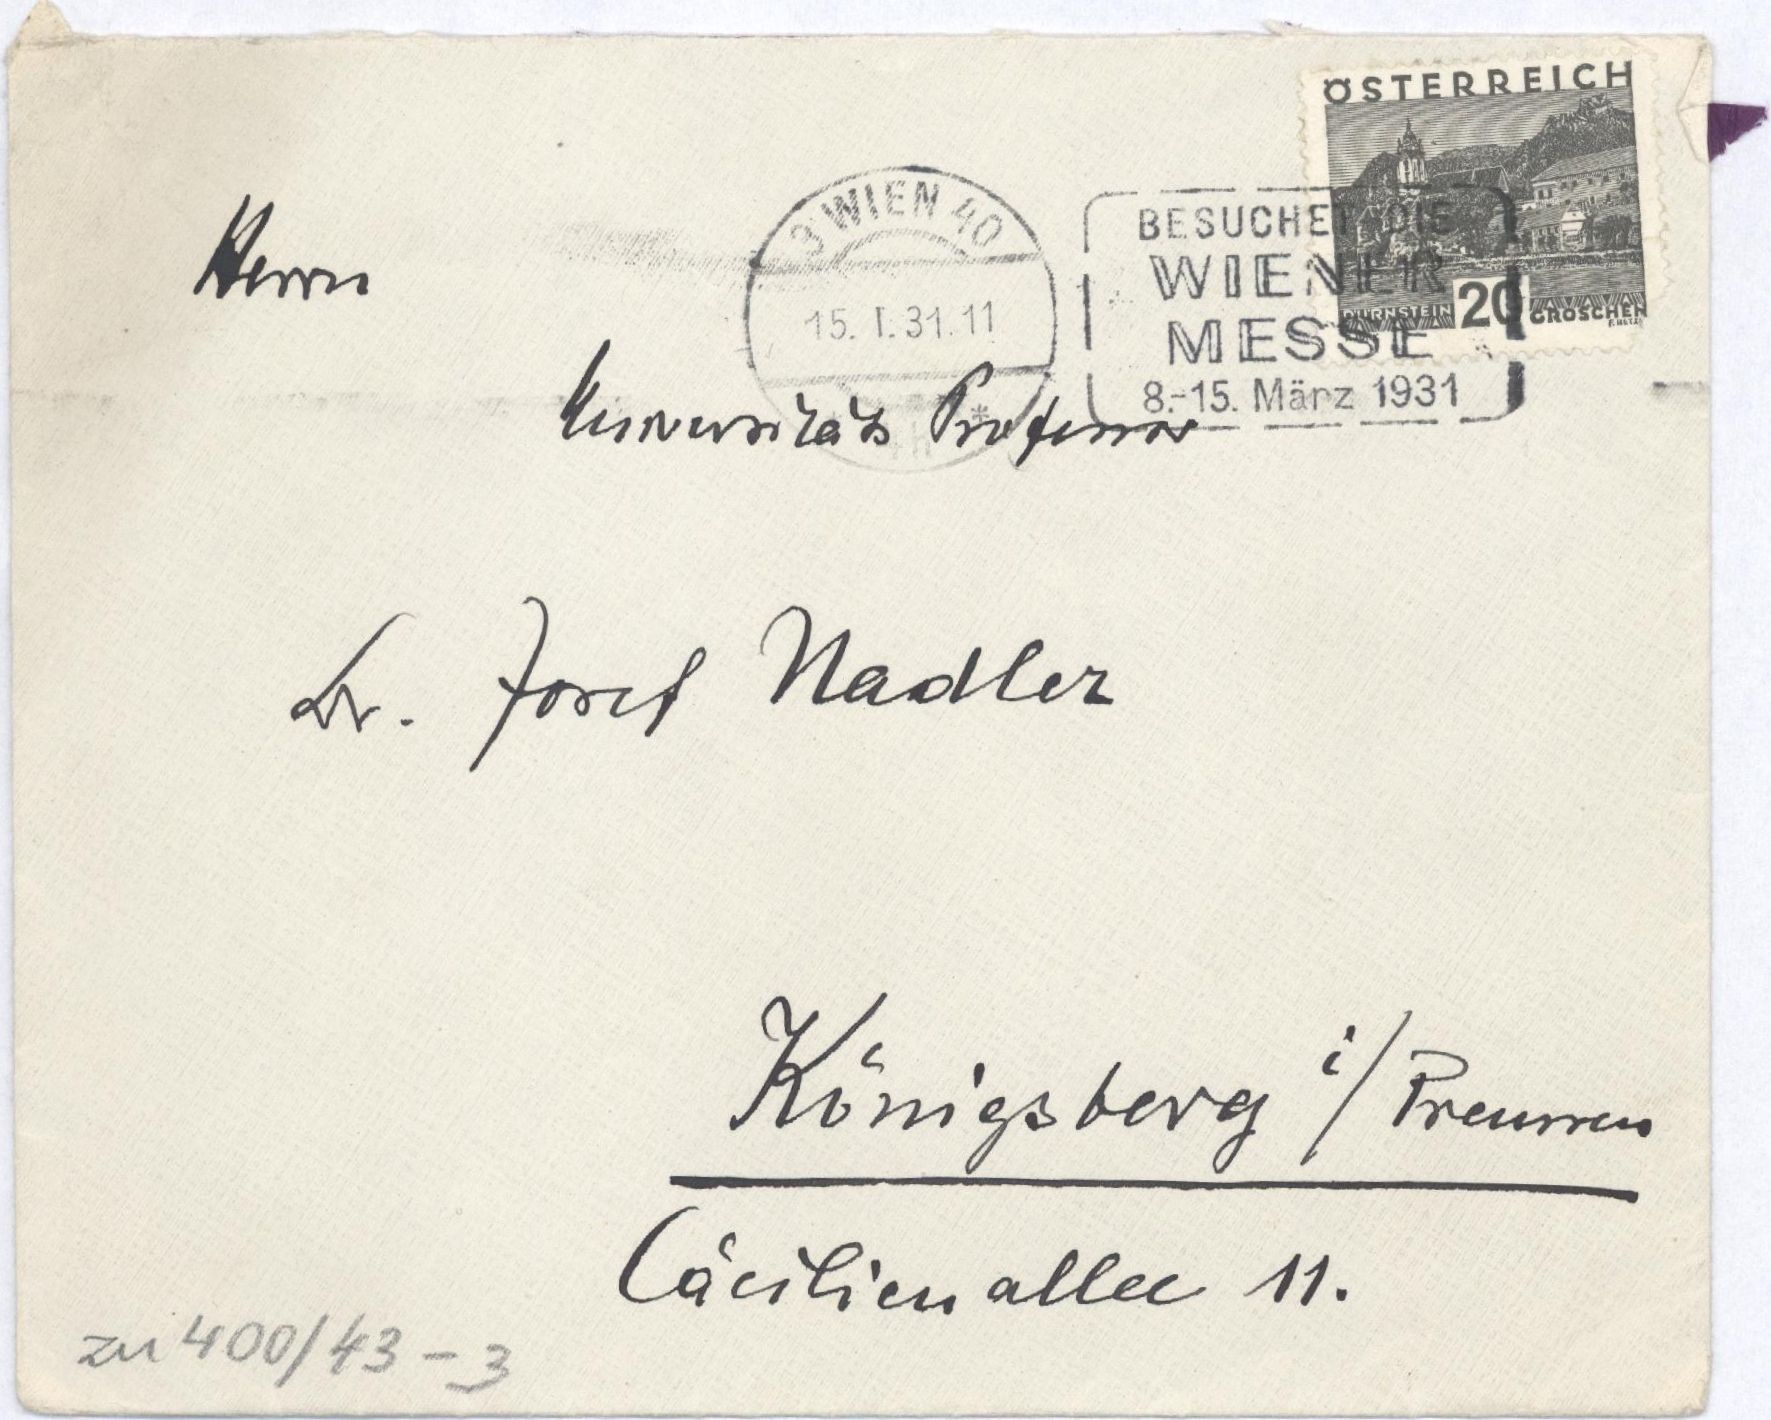 ÖSTERREICH
DÜRNSTEIN 20 GROSCHEN
3 WIEN 40
15. I. 31. 11
BESUCHET DIE
WIENER
MESSE
8.-15. März 1931
Herrn
Universitäts Professor
Dr. Josef Nadler
Königsberg i/Preussen
Cäcilienallee 11.
zu 400/43-3